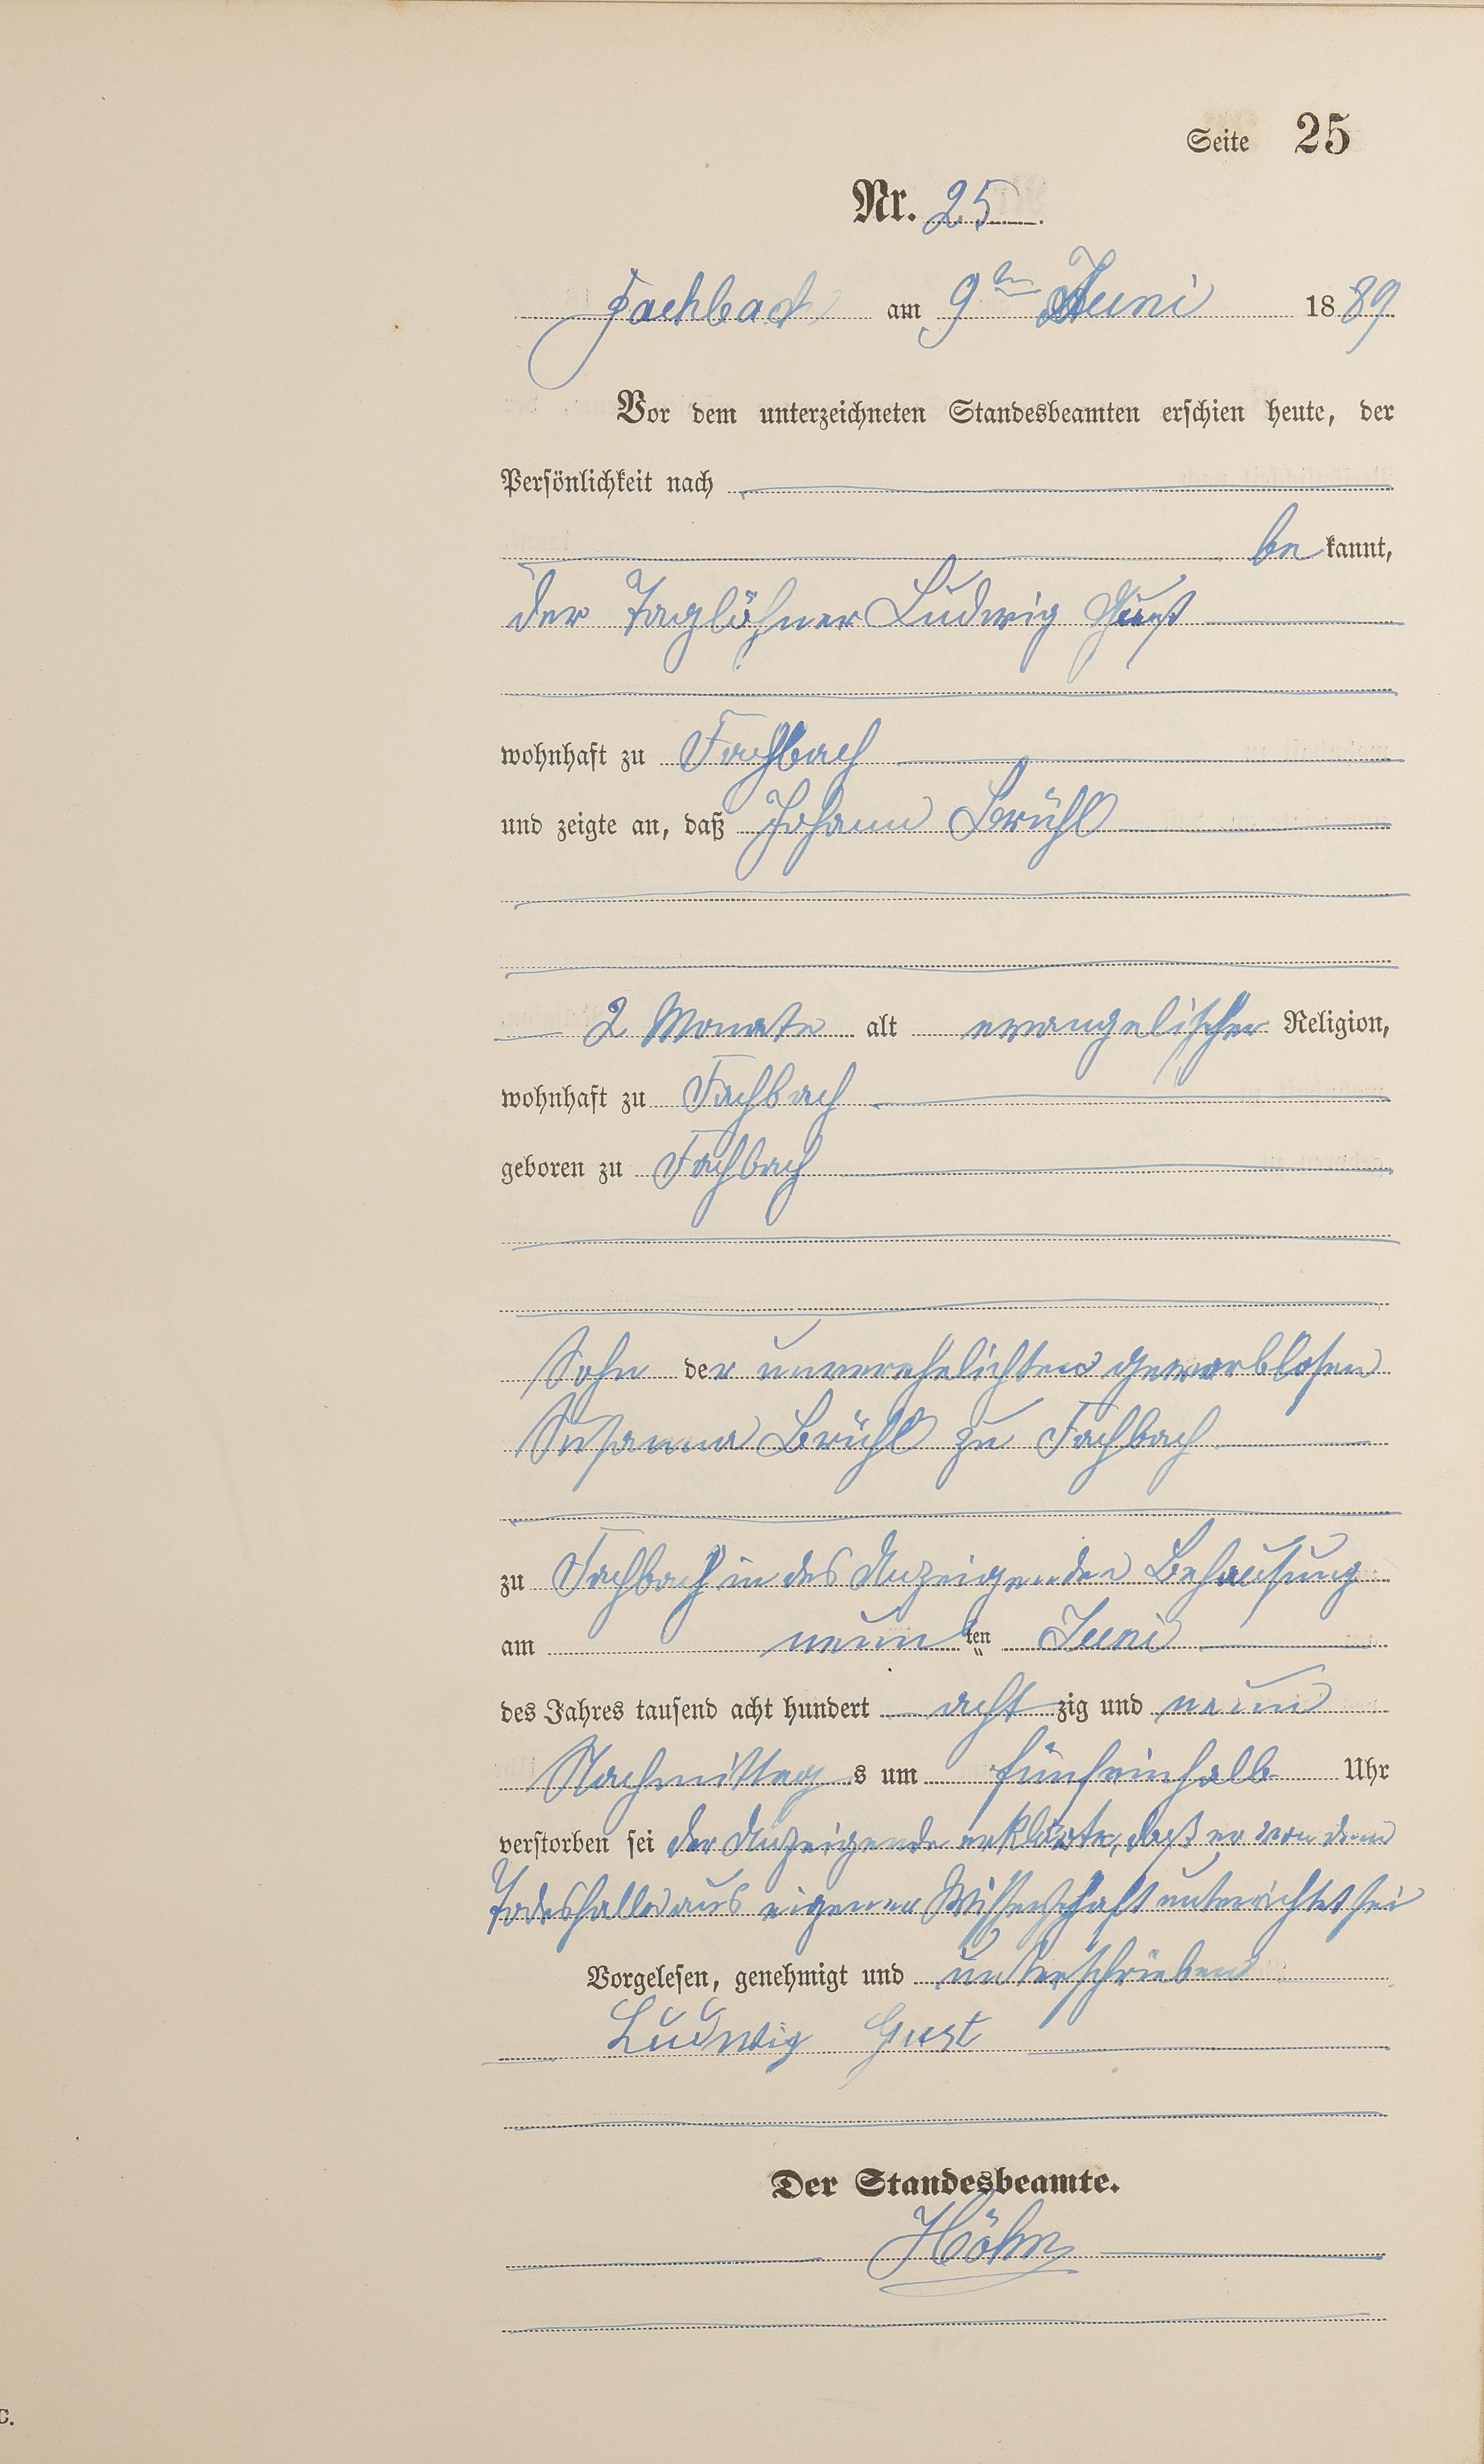 Seite 25
Nr. 25
Fachbach am 9ten Juni 1889
Vor dem unterzeichneten Standesbeamten erschien heute, der
Persönlichkeit nach
bekannt,
der Taglöhner Ludwig Gust
wohnhaft zu Fachbach
und zeigte an, daß Johann Brühl
2 Monate alt evangelischer Religion,
wohnhaft zu Fachbach
geboren zu Fachbach
Sohn der unverehelichten gewerblosen
Susanna Brühl zu Fachbach
zu Fachbach in des Anzeigenden Behausung
am neunten Juni
des Jahres tausend acht hundert achtzig und neun
Nachmittags um fünfeinhalb Uhr
verstorben sei der Anzeigende erklärte, daß er von dem
Todesfalle aus eigener Wissenschaft unterrichtet sei
Vorgelesen, genehmigt und unterschrieben
Ludwig Gust
Der Standesbeamte.
Höhn
C.